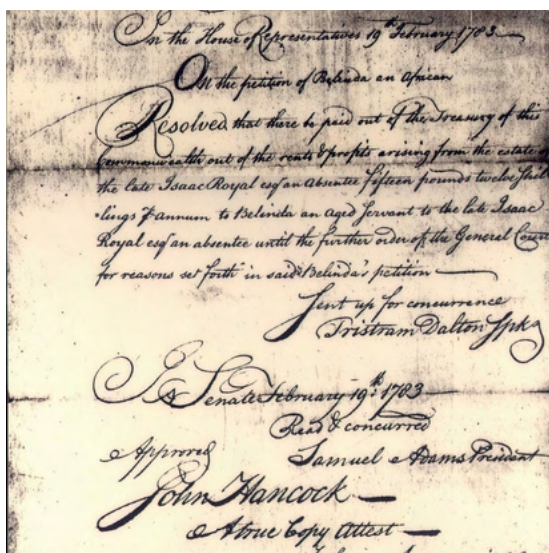 In the House of Representatives 19th February 1783
On the petition of Belinda an African
Resolved that there be paid out of the Treasury of this
Commonwealth out of the rents & profits arising from the estate of
the late Isaac Royal esqr an absentee fifteen pounds twelve Shil
lings P annum to Belinda an aged servant to the late Isaac
Royal esqr an absentee until the further order of the General Court
for reasons set forth in said Belinda's petition
Sent up for concurrence
Tristram Dalton Spkr
In Senate February 19th 1783
Read & concurred
Approved
Samuel Adams President
John Hancock
A true Copy Attest